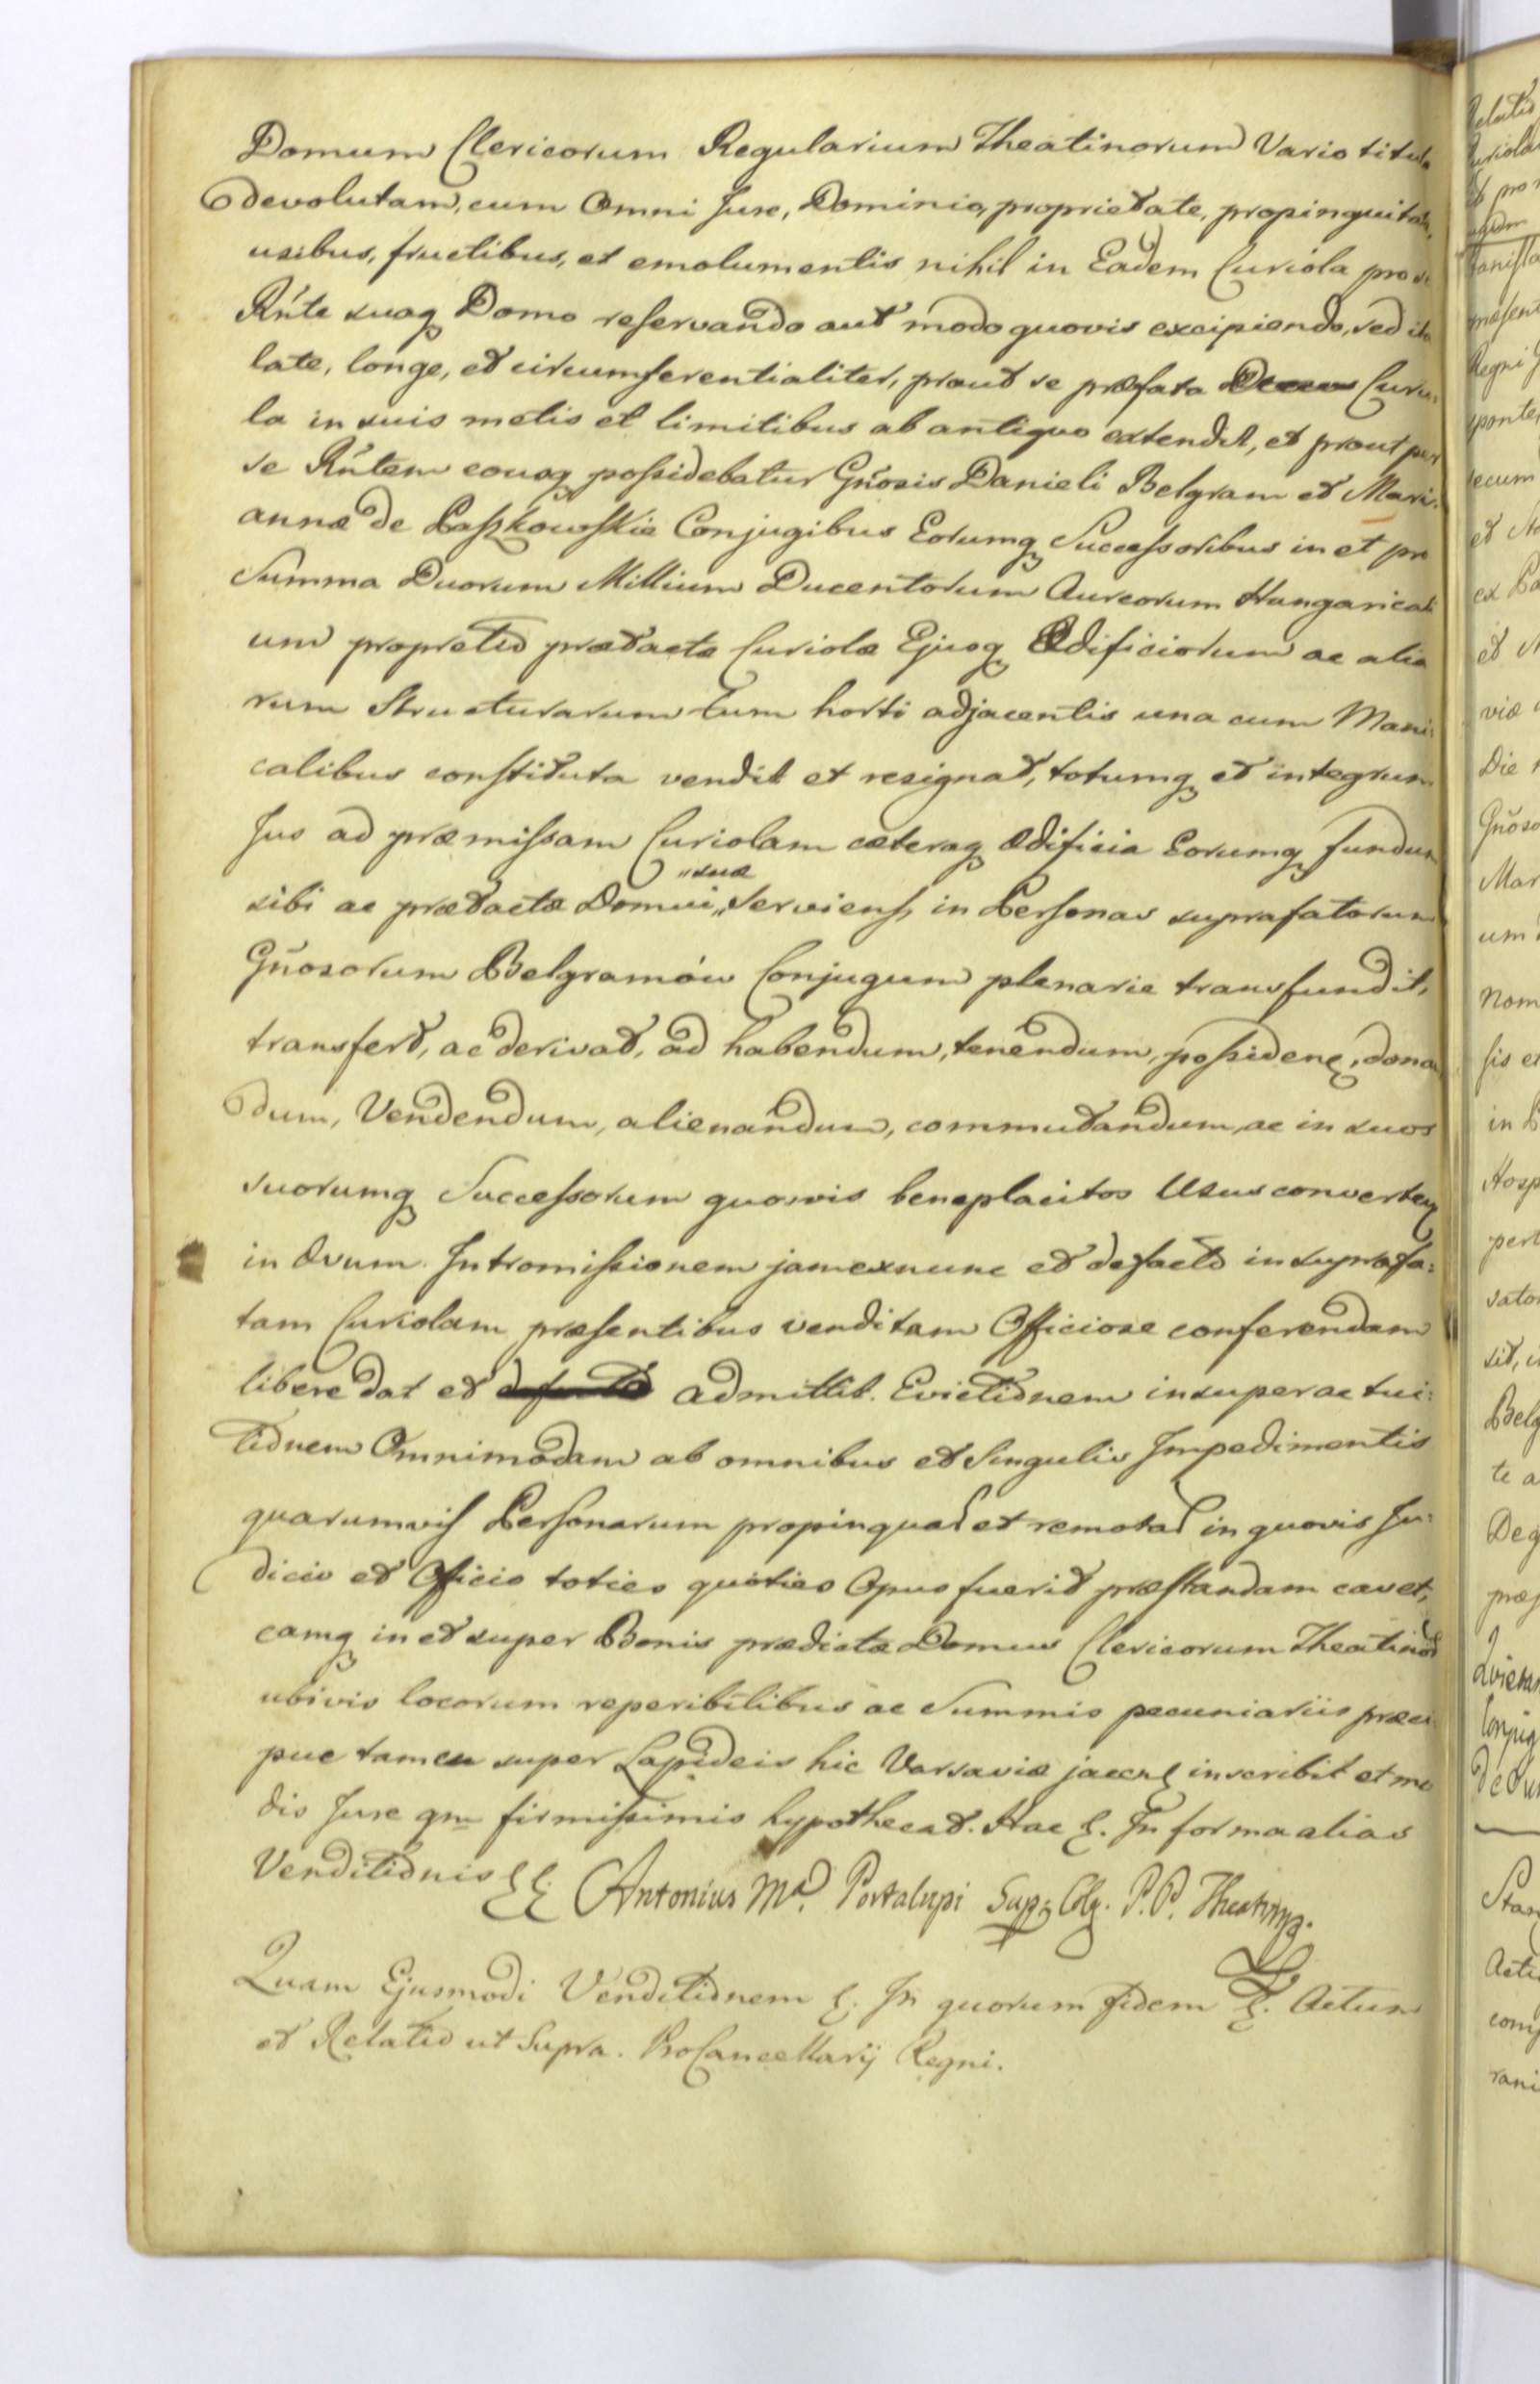 Domum Clericorum Regularium Theatinorum Vario titulo
devolutam, cum Omni Jure, Dominio, proprietate, propinquitate,
usibus, fructibus, et emolumentis nihil in Eadem Curiola pro se
Rnte suaq Domo reservando aut modo quovis excipiendo, sed ita
late, longe, et circumferentialiter, prout se præfata Curio:
la in suis metis et limitibus ab antiquo extendit, et prout per
se Rntem eousq possidebatur Gnosis Danieli Belgram et Mari:
annæ de Paszkowskie Conjugibus Eorumq Successoribus in et pro
Summa Duorum Millium Ducentorum Aureorum Hungaricali
um pro pretio prætactæ Curiolæ Ejusq Ædificiorum ac alia
rum Structurarum tum horti adjacentis una cum Mani:
calibus constituta vendit et resignat, totumq et integrum
Jus ad præmissam Curiolam cæteraq Ædificia Eorumq fundum
sibi ac prætactæ Domui "suæ serviens, in Personas suprafatorum
Gnosorum Belgramów Conjugum plenarie transfundit,
transfert, ac derivat, ad habendum, tenendum, possidenę, dona
dum, Vendendum, alienandum, commutandum, ac in suos
suorumq Successorum quosvis beneplacitos Usus converteń
in Ævum. Intromissionem jamexnunc et defacto in suprafa:
tam Curiolam præsentibus venditam Officiose conferendam
libere dat et admittit. Evictionem insuper ac tui:
tionem Omnimodam ab omnibus et Singulis Impedimentis
quarumvis Personarum propinquar et remotar in quovis Ju:
dicio et Officio toties quoties Opus fuerit præstandam cavet,
eamq in et super Bonis prædictæ Domus Clericorum Theatinor
ubivis locorum reperibilibus ac Summis pecuniariis præci
pue tamen super Lapideis hic Varsaviæ jacen inscribit et mo
dis Jure qm firmissimis hypothecat. Hac &. In forma alias
Venditionis && Antonius Ma. Portalupi Sup: Colg. P.P. Theatinorz.
Quam Ejusmodi Venditionem &. In quorum fidem &. Actum
et Relatio ut Supra. ProCancellarij Regni.